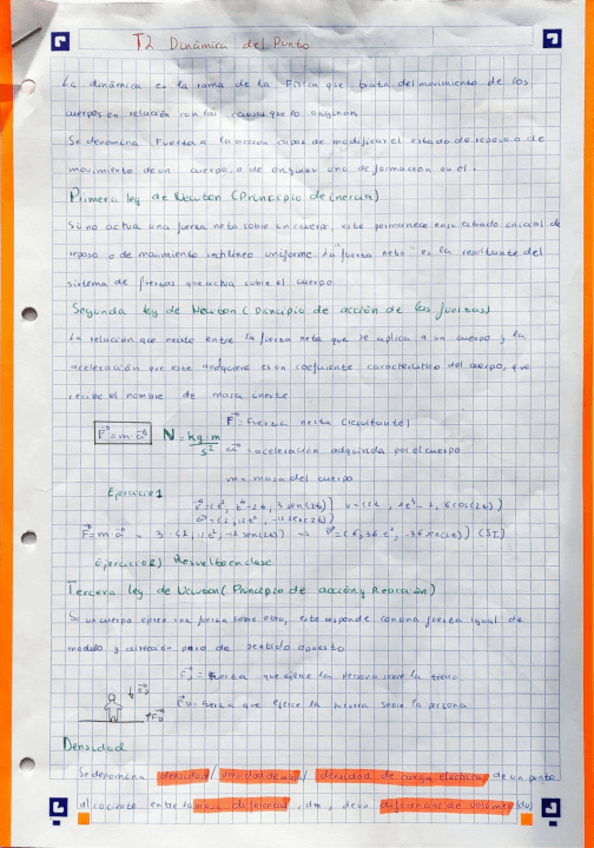 T2 Dinámica del Punto
La dinámica es la rama de la Física que trata del movimiento de los
cuerpos en relación con las causas que lo originan
Se denomina Fuerza a la acción capaz de modificar el estado de reposo o de
movimiento de un cuerpo, o de originar una deformacion en el.
Primera ley de Newton (Principio de inercia)
Si no actua una fuerza neta sobre un cuerpo, este permanece en su estado inicial de
reposo o de movimiento rectilíneo uniforme. La "fuerza neta" es la resultante del
sistema de fuerzas que actua sobre el cuerpo.
Segunda ley de Newton (Principio de acción de las fuerzas)
La relación que existe entre la fuerza neta que se aplica a un cuerpo y la
aceleración que este adquiere es un coeficiente caracteristico del cuerpo, que
recibe el nombre de masa inerte
F = Fuerza neta (resultante)
F = m · a N = kg·m/s² a = aceleración adquirida por el cuerpo
m = masa del cuerpo
Ejercicio 1
F = m · a = 3 · (2, 12t², -12 sen(2t)) => F = (6, 36t², -36 sen(2t)) (SI)
Ejercicio 2) Resuelto en clase
Tercera ley de Newton (Principio de acción y Reacción)
Si un cuerpo ejerce una fuerza sobre otro, este responde con una fuerza igual de
modulo y dirección pero de sentido opuesto
Fuerza que ejerce la persona sobre la tierra.
Fuerza que ejerce la tierra sobre la persona
Densidad
Se denomina densidad / densidad de masa / densidad de carga electrica de un punto
al cociente entre la masa diferencial, dm, de un diferencial de volumen (dv)